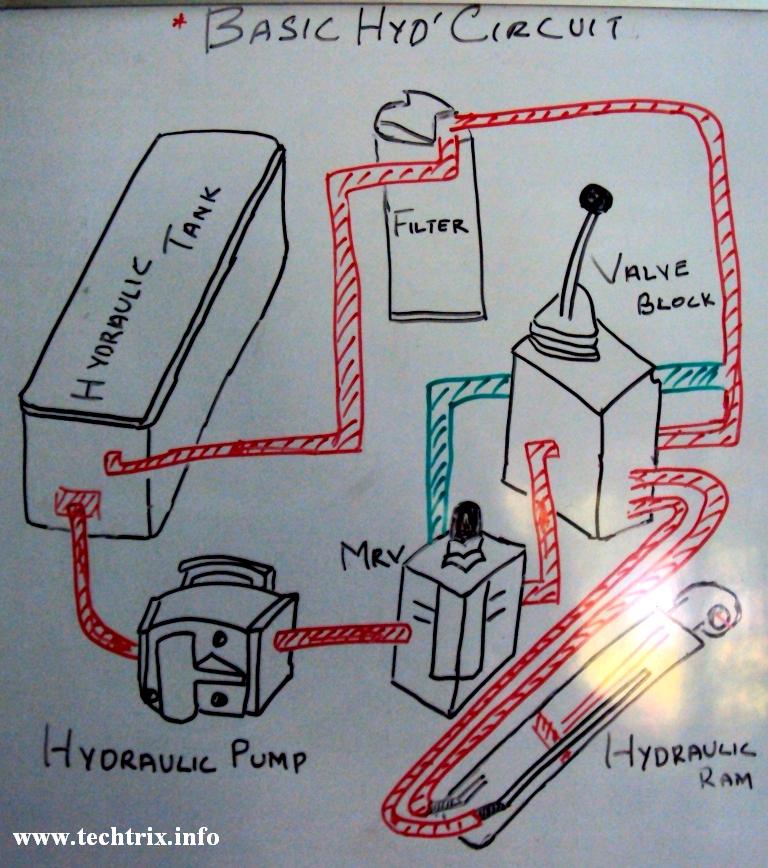 * BASIC HYD' CIRCUIT
HYDRAULIC TANK
FILTER
VALVE
BLOCK
MRV
HYDRAULIC PUMP
HYDRAULIC
RAM
www.techtrix.info